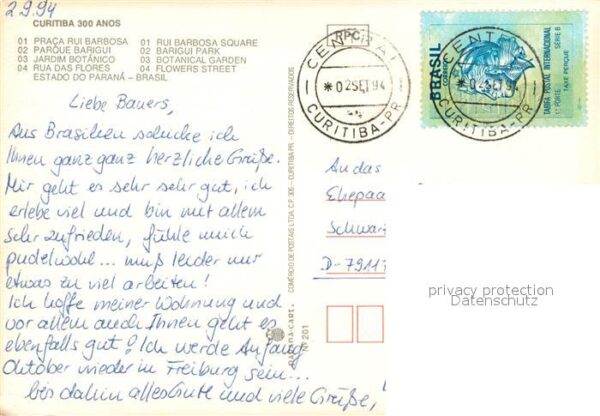 2.9.94
CURITIBA 300 ANOS
01 PRAÇA RUI BARBOSA 01 RUI BARBOSA SQUARE
02 PARQUE BARIGUI 02 BARIGUI PARK
03 JARDIM BOTÂNICO 03 BOTANICAL GARDEN
04 RUA DAS FLORES 04 FLOWERS STREET
ESTADO DO PARANÁ - BRASIL
Liebe Bauers,
Aus Brasilien schicke ich
Ihnen ganz ganz herzliche Grüße.
Mir geht es sehr sehr gut, ich
erlebe viel und bin mit allem
sehr zufrieden, fühle mich
pudelwohl... muß leider nur
etwas zu viel arbeiten!
Ich hoffe meiner Wohnung und
vor allem auch Ihnen geht es
ebenfalls gut! Ich werde Anfang
Oktober wieder in Freiburg sein...
bis dahin alles Gute und viele Grüße,
COMÉRCIO DE POSTAIS LTDA. C.P. 305 - CURITIBA-PR. - DIREITOS RESERVADOS
Nº 201
RPC
CENTRAL
02SET94
CURITIBA-PR
BRASIL
CORREIO
TARIFA POSTAL INTERNACIONAL
1º PORTE SÉRIE B
TAXE PERÇUE
CENTRAL
02SET94
CURITIBA-PR
An das
Ehepaa
Schwar
D-7911
privacy protection
Datenschutz